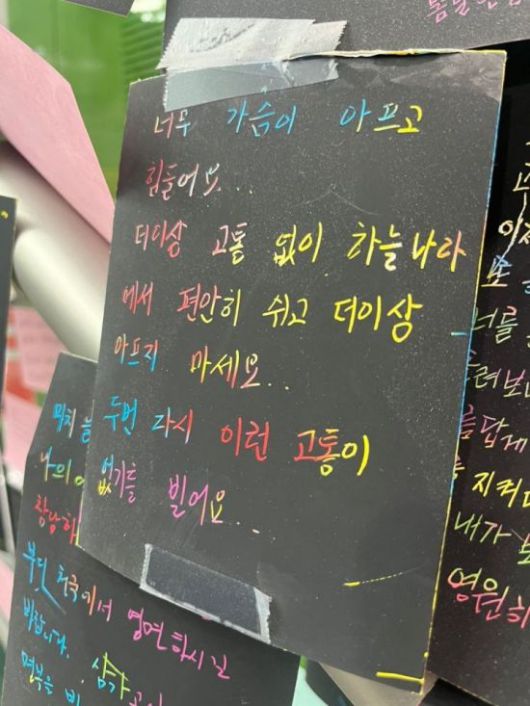 너무 가슴이 아프고
힘들어요...
더이상 고통 없이 하늘나라
에서 편안히 쉬고 더이상
아프지 마세요..
두번 다시 이런 고통이
없기를 빌어요...
나의
부디 천국에서 영면하시길
바랍니다. 삼가
명복을 빕
너를
름답게
지켜
내가
영원히